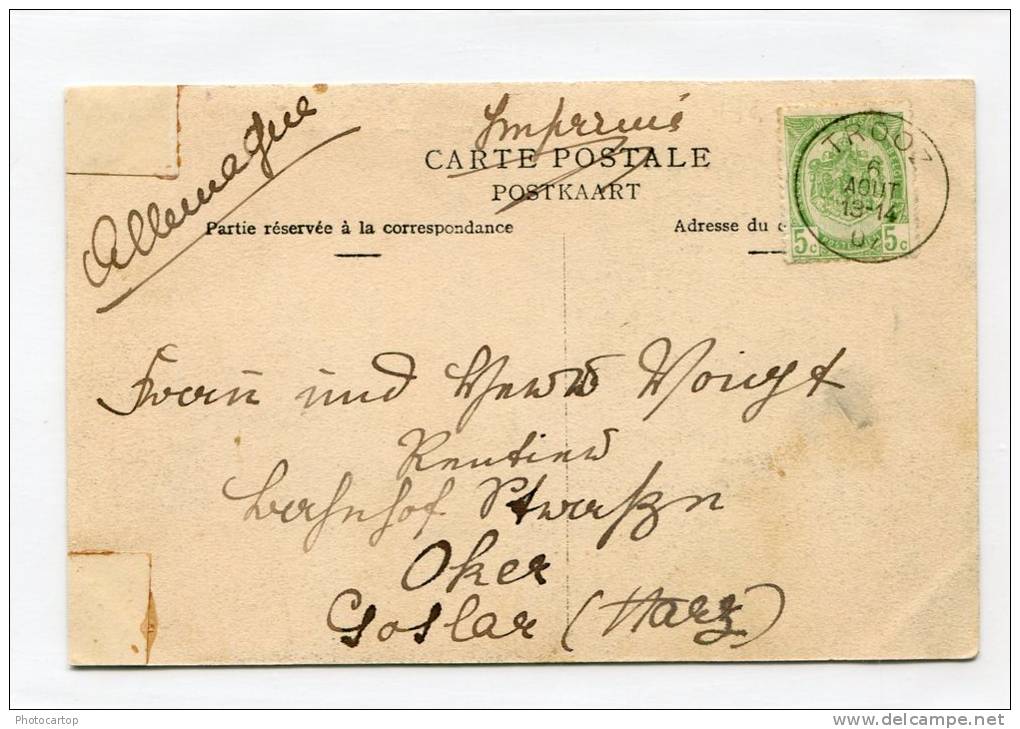 Allemagne
Imprimé
CARTE POSTALE
POSTKAART
Partie réservée à la correspondance
Adresse du
TROOZ
6
AOUT
13-14
07
5c 5c
Frau und Herrn Voigt
Rentier
Bahnhof Straße
Oker
Goslar (Harz)
Photocartop
www.delcampe.net